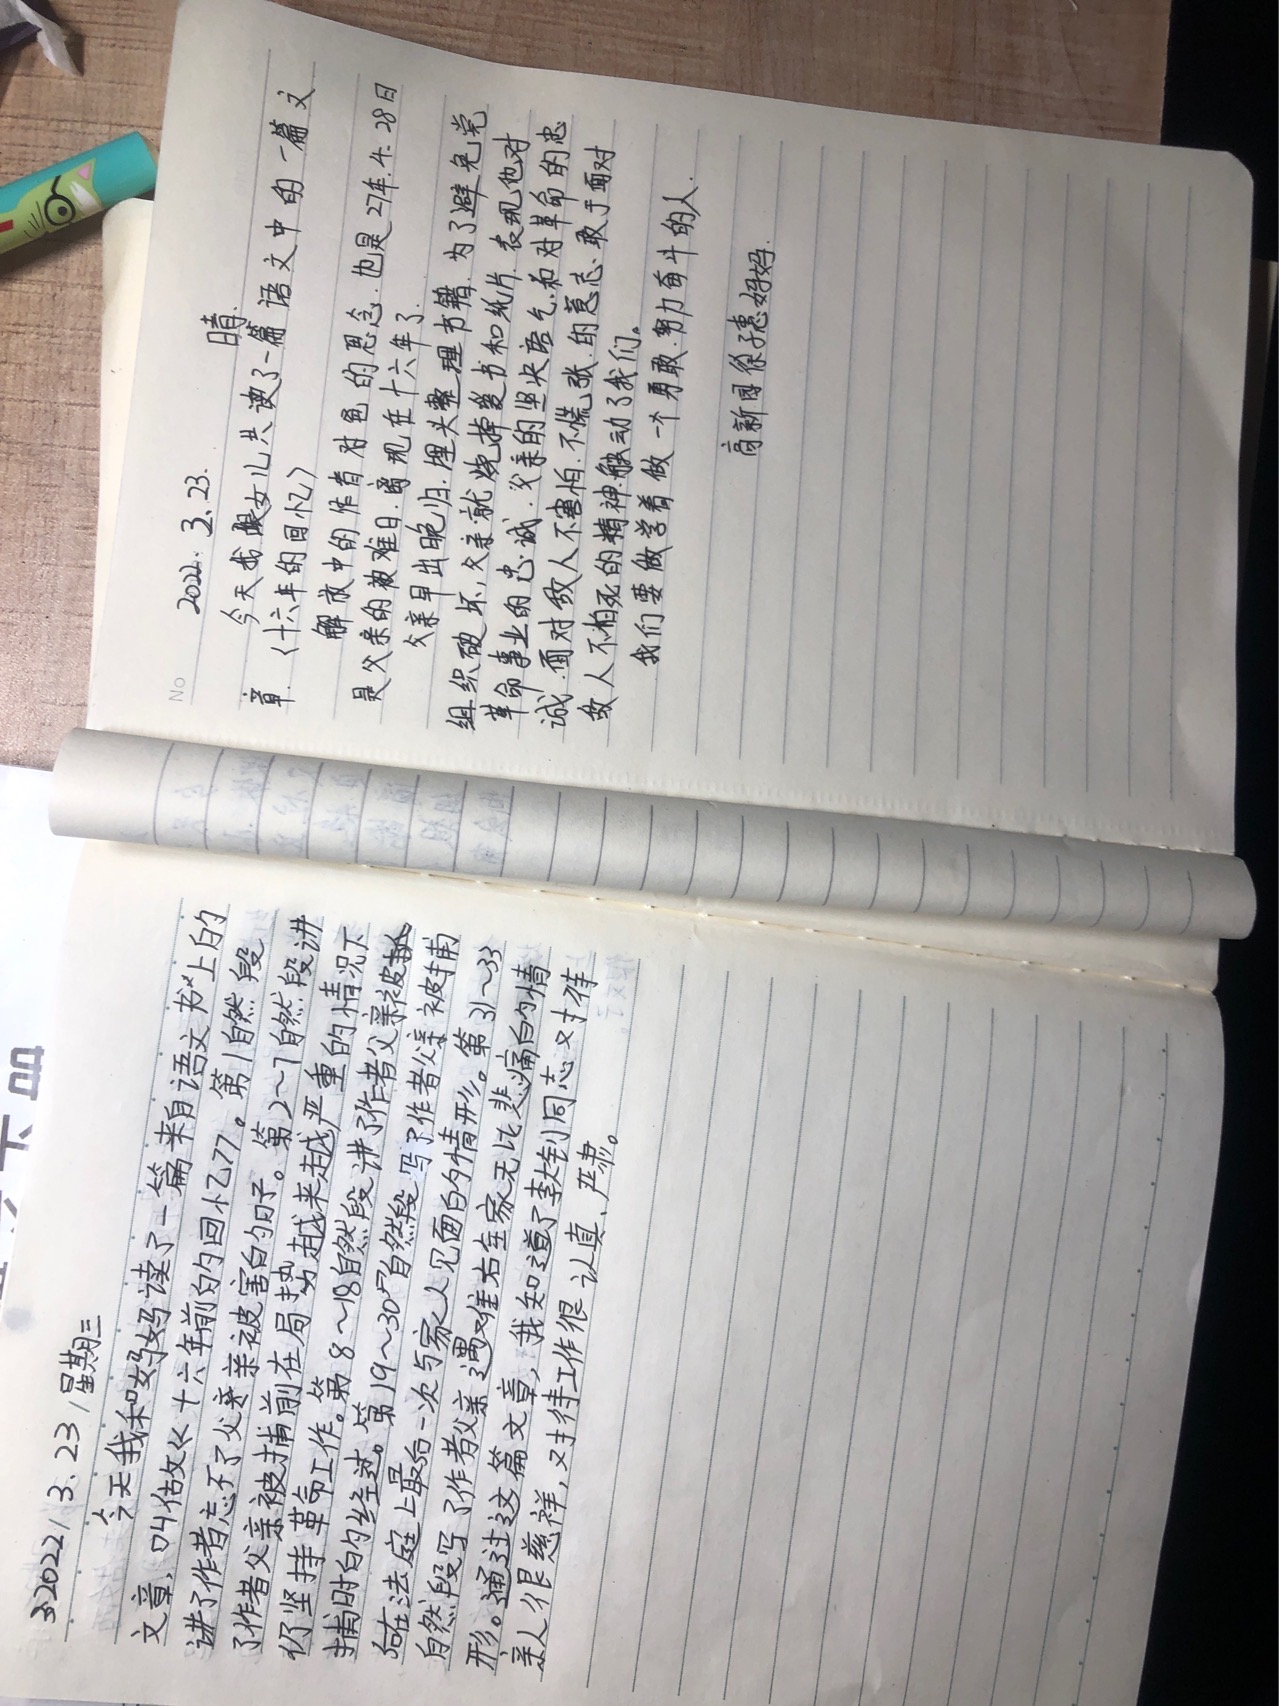 3.2022/3.23/星期三
今天我和妈妈读了一篇来自语文书上的
文章,叫估攵《十六年前的回忆》。第1自然段
讲了作者忘不了父亲被害的日子。第2~7自然段讲
了作者父亲被捕前在局势越来越严重的情况下
仍坚持革命工作。第8~18自然段讲了作者父亲被
捕时的经过。第19~30自然段写了作者父亲被捕
后在法庭上最后一次与家人见面的情形。第31~33
自然段写了作者父亲遇难后全家无比悲痛的情
形。通过这篇文章,我知道了李大钊同志对待
亲人很慈祥,对待工作很认真、严肃。
No
2022.3.23. 晴.
今天我跟女儿共读了一篇语文中的一篇文
章.〈十六年的回忆〉
解放中的作者对爸的思念.也是27年.4.28日
是父亲的被难日.离现在十六年了.
父亲早出晚归.埋头整理书籍.为了避免党
组织破坏,父亲就烧掉爱书和纸片.表现他对
革命事业的忠诚.父亲的坚决语气.和对革命的忠
诚.面对敌人不害怕.不慌张.的意志.敢于面对
敌人不怕死的精神.触动了我们。
我们要做学着做一个勇敢.努力奋斗的人.
高新园徐子惠妈妈.